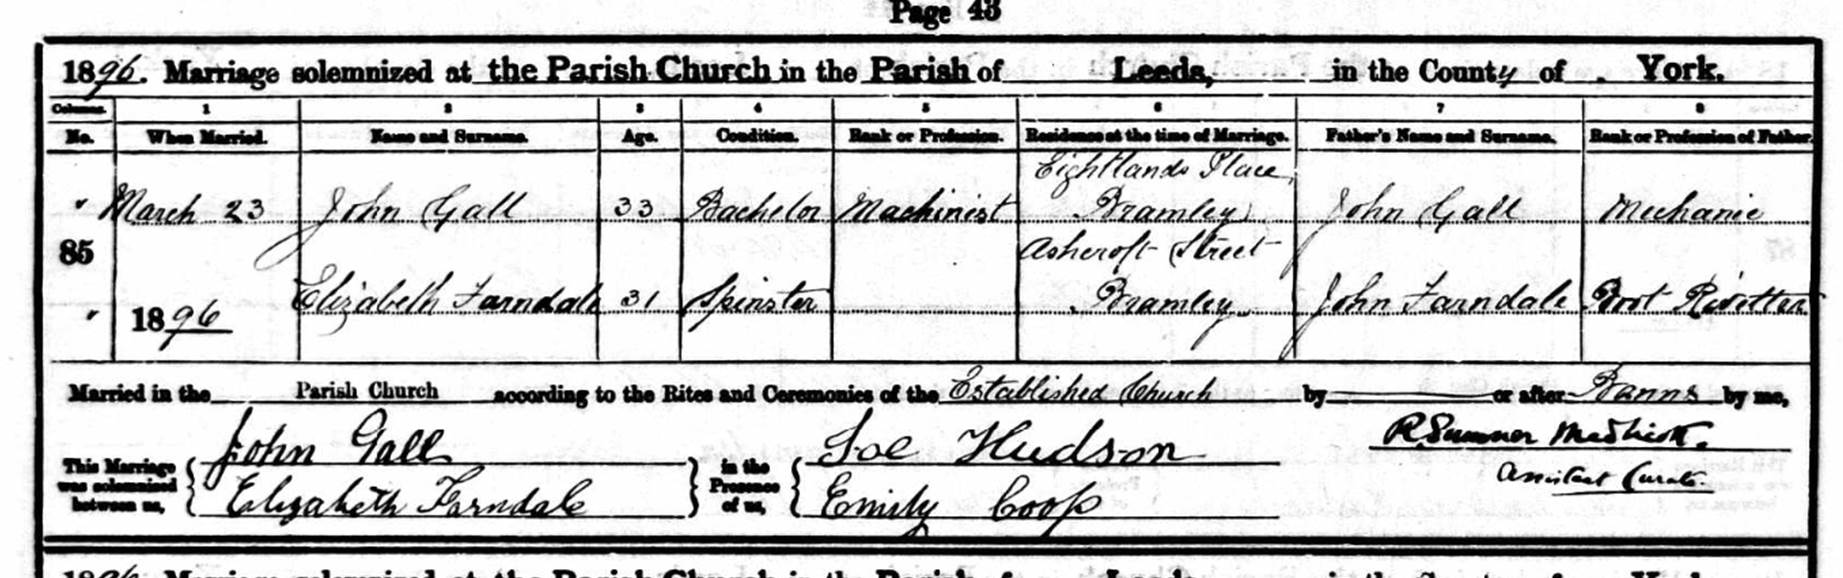 Page 43
1896. Marriage solemnized at the Parish Church in the Parish of Leeds, in the County of York.
Columns. 1 2 3 4 5 6 7 8
No. When Married. Name and Surname. Age. Condition. Rank or Profession. Residence at the time of Marriage. Father's Name and Surname. Rank or Profession of Father.
Eightlands Place
" March 23 John Gall 33 Bachelor Machinist Bramley John Gall Mechanic
85 Ashcroft Street
" 1896 Elizabeth Farndale 31 Spinster Bramley John Farndale Boot Rivitter
Married in the Parish Church according to the Rites and Ceremonies of the Established Church by or after Banns by me,
John Gall Joe Hudson R. Sumner
This Marriage was solemnized between us, in the Presence of us, Assistant Curate.
Elizabeth Farndale Emily Coop
1896 Marriage solemnized at the Parish Church in the Parish of Leeds in the County of York